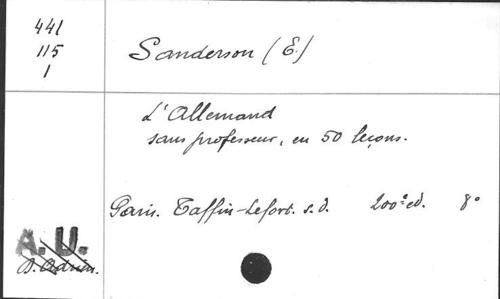 441
115
1
Sanderson (E.)
L'Allemand
sans professeur, en 50 leçons.
Paris. Taffin-Lefort. s.d. 200e ed. 8°
A.U.